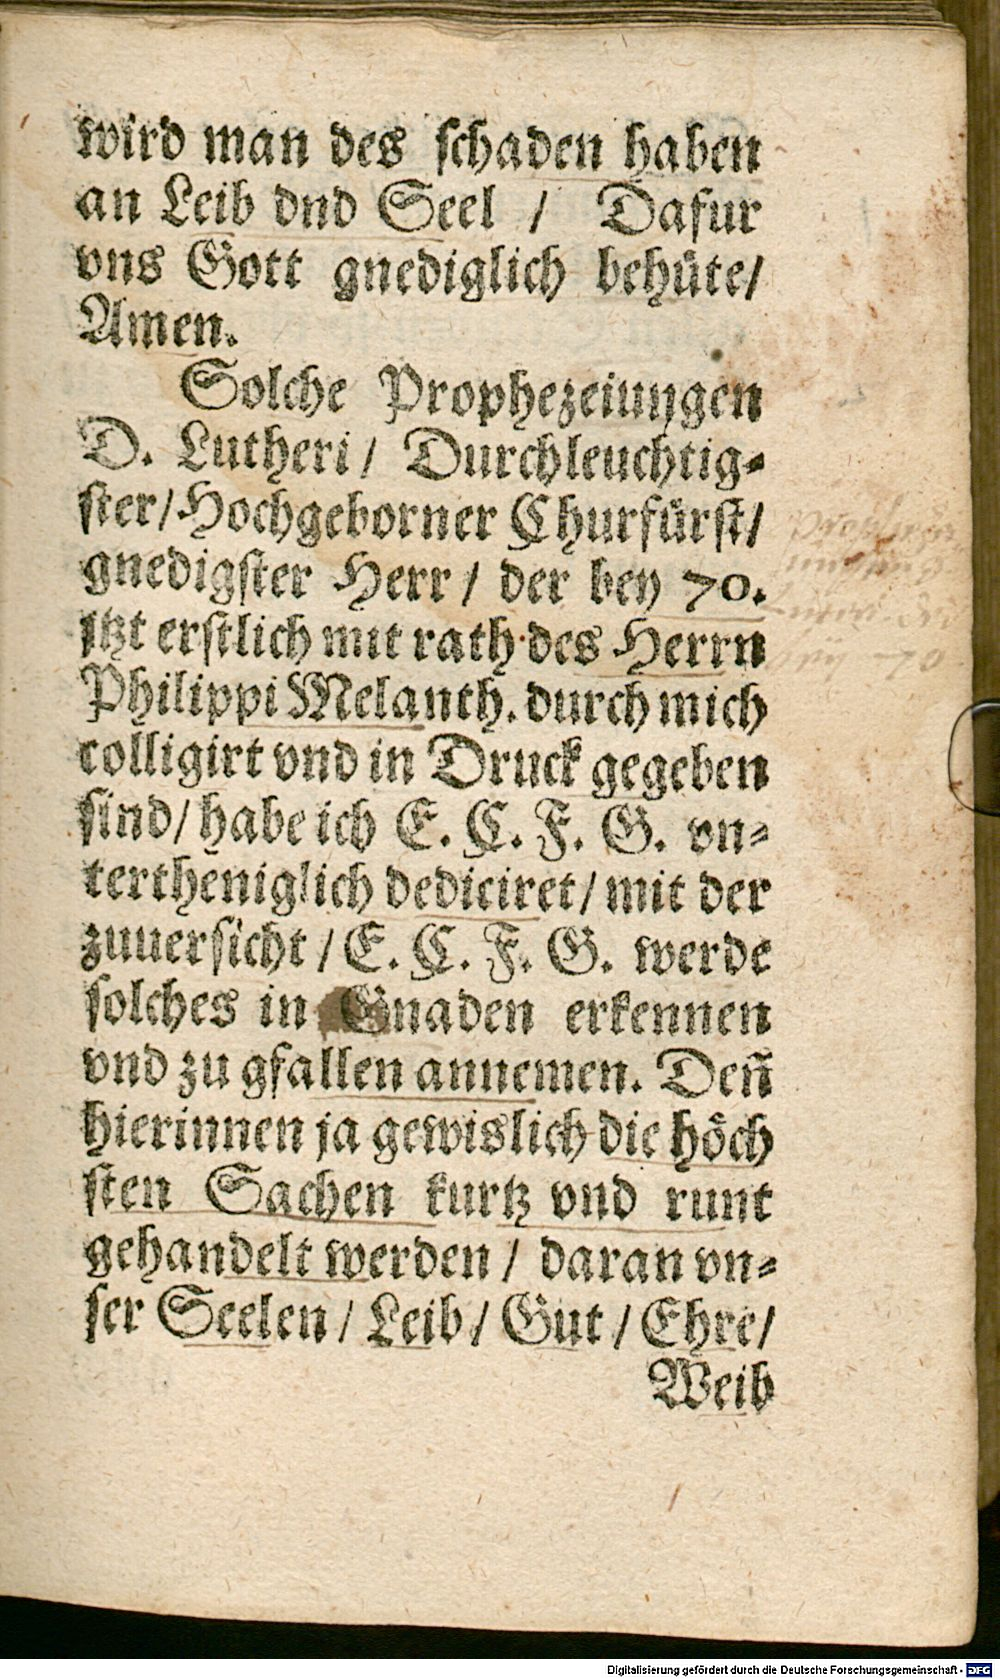 wird man des schaden haben
an Leib vnd Seel / Dafur
vns Gott gnediglich behüte/
Amen.
Solche Prophezeiungen
D. Lutheri / Durchleuchtig-
ster/ Hochgeborner Churfürst/
gnedigster Herr / der bey 70.
itzt erstlich mit rath des Herrn
Philippi Melanth. durch mich
colligirt vnd in Druck gegeben
sind/ habe ich E. C. F. G. vn-
tertheniglich dediciret/ mit der
zuuersicht / E. C. F. G. werde
solches in Gnaden erkennen
vnd zu gfallen annemen. Deñ
hierinnen ja gewislich die höch
sten Sachen kurtz vnd runt
gehandelt werden / daran vn-
ser Seelen / Leib / Gut / Ehre/
Weib
Digitalisierung gefördert durch die Deutsche Forschungsgemeinschaft - DFG